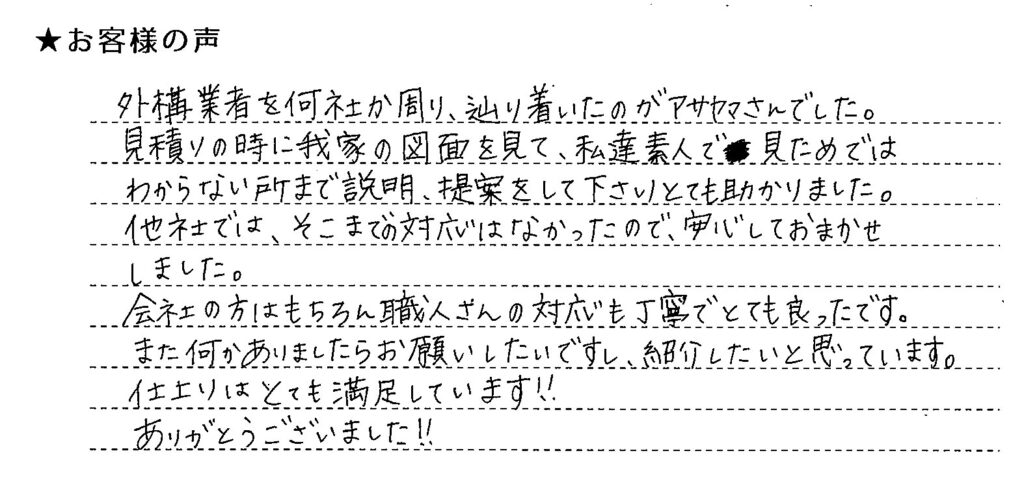 ★お客様の声
外構業者を何社か周り、辿り着いたのがアサヤマさんでした。
見積りの時に我家の図面を見て、私達素人で見ためでは
わからない所まで説明、提案をして下さりとても助かりました。
他社では、そこまでの対応はなかったので、安心しておまかせ
しました。
会社の方はもちろん職人さんの対応も丁寧でとても良ったです。
また何かありましたらお願いしたいですし、紹介したいと思っています。
仕上りはとても満足しています!!
ありがとうございました!!